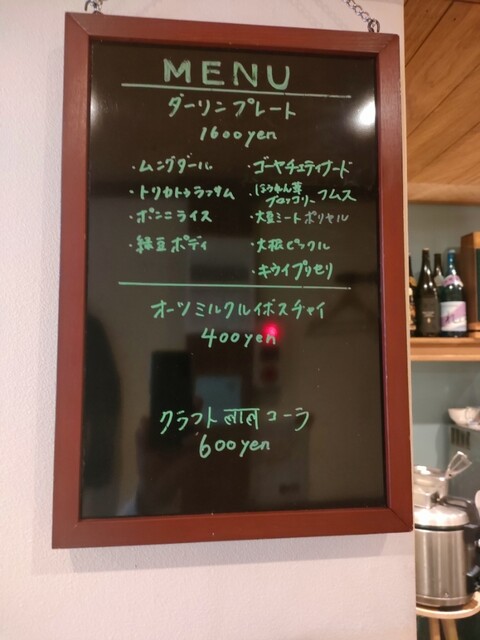 MENU
ダーリンプレート
1600yen
・ムングダール
・トリカトゥラッサム
・ポンニライス
・緑豆ポディ
・ゴーヤチェティナード
・ほうれん草ブロッコリーフムス
・大豆ミートポリヤル
・大根ピックル
・キウイプリセリ
オーツミルクルイボスチャイ
400yen
クラフト コーラ
600yen